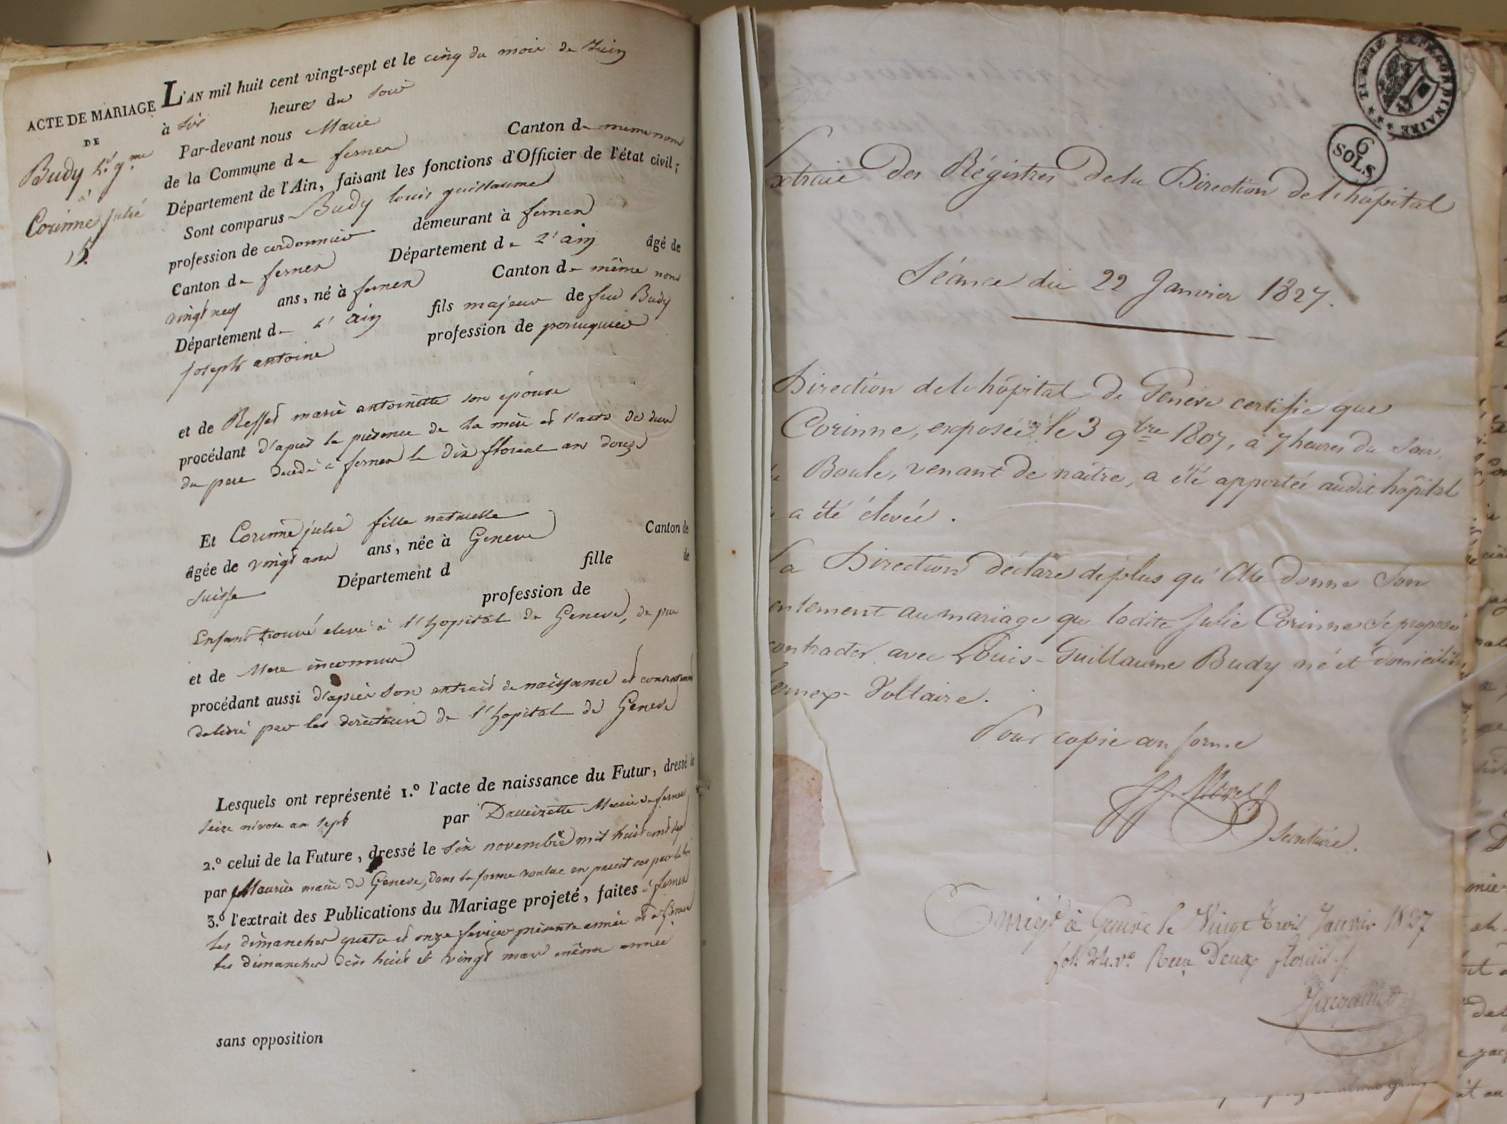 ACTE DE MARIAGE
DE
Budy Ls gme
à
Corinne julie
L'AN mil huit cent vingt-sept et le cinq du mois de Juin
à six heures du soir
Par-devant nous Maire
de la Commune de fernex Canton de meme nom
Département de l'Ain, faisant les fonctions d'Officier de l'état civil;
Sont comparus Budy louis guillaume
profession de cordonnier demeurant à fernex
Canton de fernex Département de L'ain âgé de
vingt neuf ans, né à fernex Canton de même nom
Département de L'ain fils majeur de feu Budy
joseph antoine profession de perruquier
et de Resses marie antoinette son épouse
procédant d'après la présence de la mère et l'acte de décès
du pere décédé à fernex le dix floréal an douze
Et Corinne julie fille naturelle
âgée de vingt ans ans, née à Geneve Canton de
Suisse Département d fille de
profession de
Enfant trouvé elevé à l'hopital de Geneve, de pere
et de Mere inconnus
procédant aussi d'après son extrait de naissance et consentement
delivré par les directeurs de l'hopital de Geneve
Lesquels ont représenté 1.º l'acte de naissance du Futur, dressé le
seize nivose an sept par Dauizette Maire de fernex
2.º celui de la Future, dressé le six novembre mil huit cent sept
par Maurice maire de Geneve, dans la forme voulue en pareil cas par la loi
3.º l'extrait des Publications du Mariage projeté, faites à fernex
les dimanches quatre et onze fevrier présente année et à
les dimanches dix huit et vingt mars même année
sans opposition
EXTRAORDINAIRE
6
SOLS
xtrait des Régistres de la Direction de l'hôpital
Séance du 22 Janvier 1827.
Direction de l'hôpital de Genève certifie que
Corinne, exposée le 3 9bre 1807, à 7 heures du Soir,
Boule, venant de naître, a été apportée audit hôpital
a été élevée.
La Direction déclare de plus qu'Elle donne Son
entement au mariage que ladite Julie Corinne Se propose
contracter avec Louis-Guillaume Budy né et domicilié
fernex-Voltaire.
Pour copie conforme
Secrétaire.
Enrigé à Genève le Vingt trois Janvier 1827
fol. 24 vo Reçu Deux florins